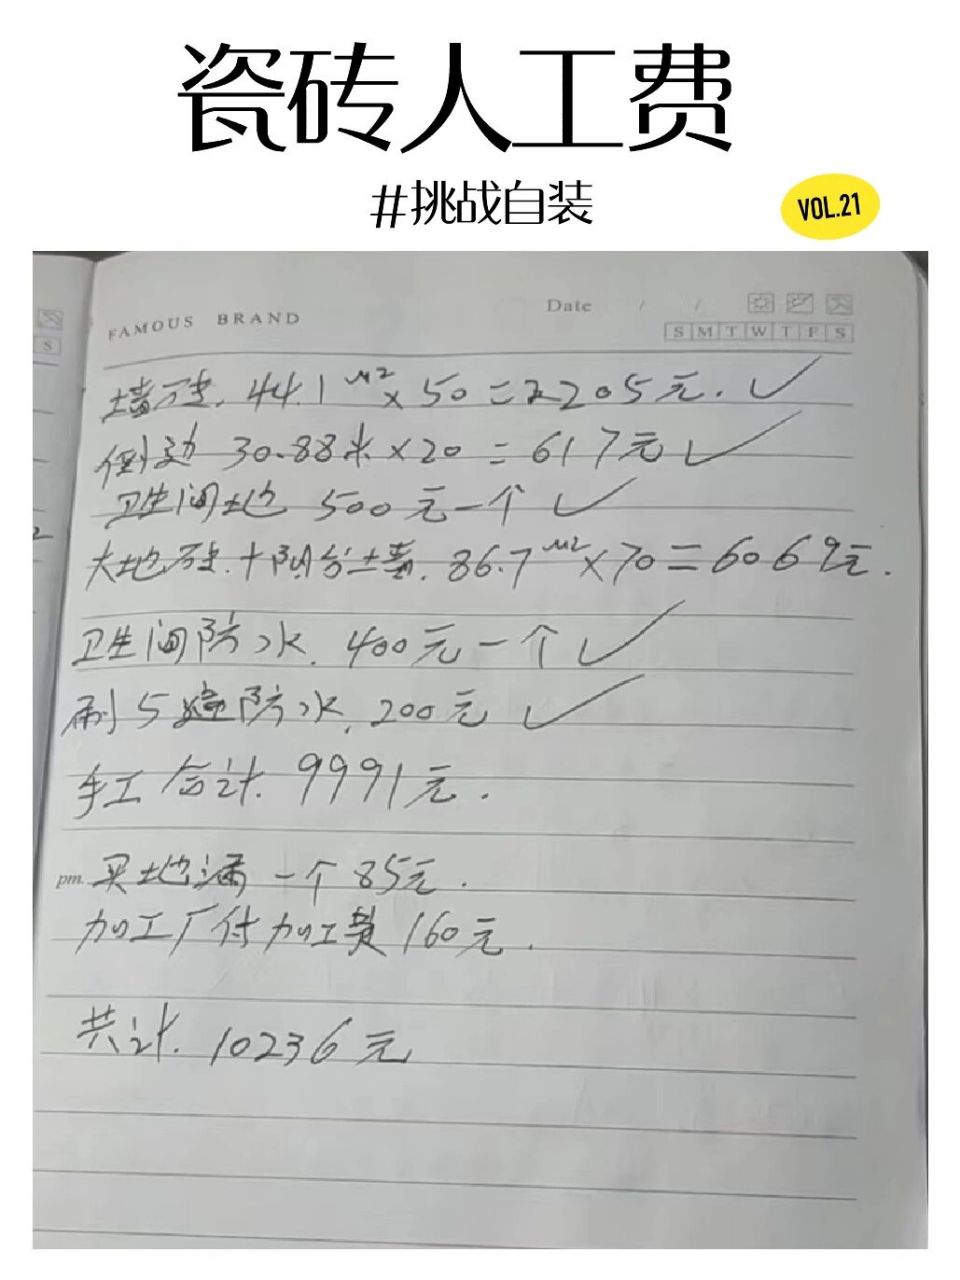 瓷砖人工费
#挑战自装
VOL.21
FAMOUS BRAND
Date / /
S M T W T F S
S
墙砖. 44.1m²×50=2205元.
倒边 30.88米×20=617元
卫生间地 500元一个
大地砖.十阴台墙. 86.7m²×70=6069元.
卫生间防水. 400元一个
刷5遍防水. 200元
手工合计. 9991元.
pm. 买地漏一个85元.
加工厂付加工费160元.
共计. 10236元